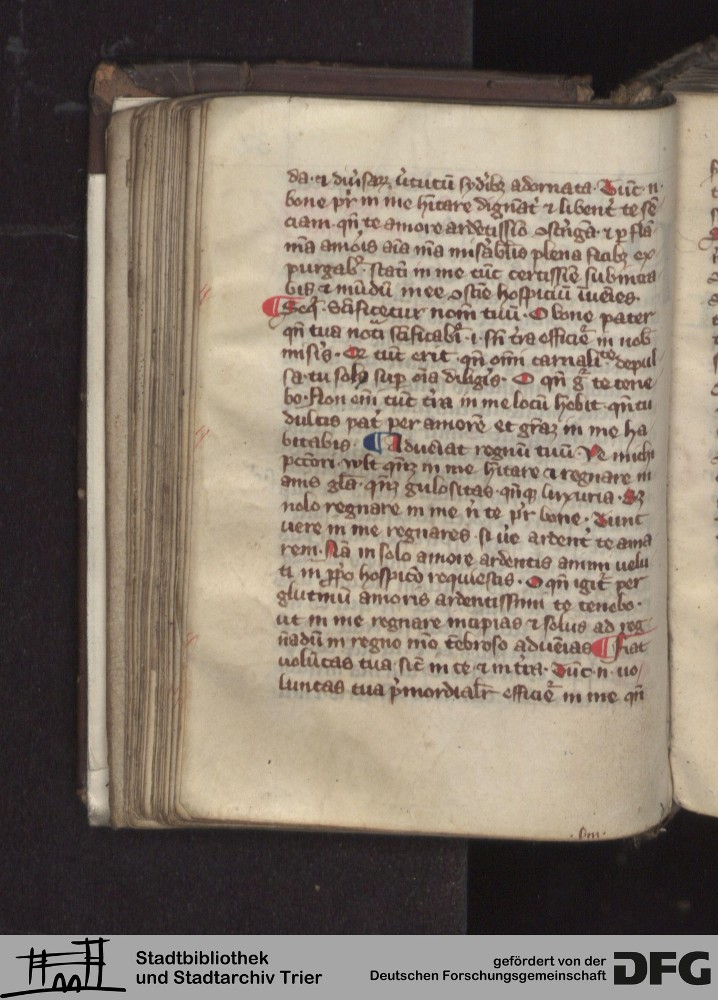 da. et diuersarum uirtutum syderibus adornata. Tunc n.
bone pr̄ in me hītare dignāt̄ & libent̄ te se
ciam. qn̄ te amore ardētissīo ꝯstrīgā. & ꝑ flā
mā amoīs aīa mā misabilīo plena ficibꝫ ex
purgabꝰ. statī in me tūc certissīe subintra
bis & mūdū mee ꝯscīe hospiciū īuēies.
Seqr̄. Scīficetur nomē tuū. O bone pater
qn̄ tua noīt scīficabīt̄. i. sn̄ tr̄a efficiēt̄ in nob
misīs. Or tūc erit. qn̄ om̄i carnalitate depul
sa. tu solꝰ sup oīa diligīs. O qn̄ g̅ te tene
bo. Non em̄ tūc tr̄a in me locū hēbit. qn̄ tu
dulcis pat̄ per amorē et grāꝫ in me ha
bitabis. Adueīat regnū tuū. Ve michi
pctōri. vult qn̄qꝫ in me hītare & regnare in
anis glā. qn̄qꝫ gulositas. qn̄qꝫ luxuria. Sꝫ
nolo regnare in me n̄ te pr̄ bone. Tunc
uere in me regnares. si ūe ardent̄ te ama
rem. Nā in solo amore ardentis animi uelu
ti in ꝓpo hospicio requiescis. O qn̄ igit̄ per
glutinū amoris ardentissimi te tenebo.
ut in me regnare incipias & solus ad reg
nādū in regno mō tēbroso aduēias. Fiat
uolūtas tua sic̄ in ce & in tr̄a. Tūc n. uo
luntas tua pͥmordialr̄ efficiēt̄ in me qn̄
Stadtbibliothek
und Stadtarchiv Trier
gefördert von der
Deutschen Forschungsgemeinschaft
DFG